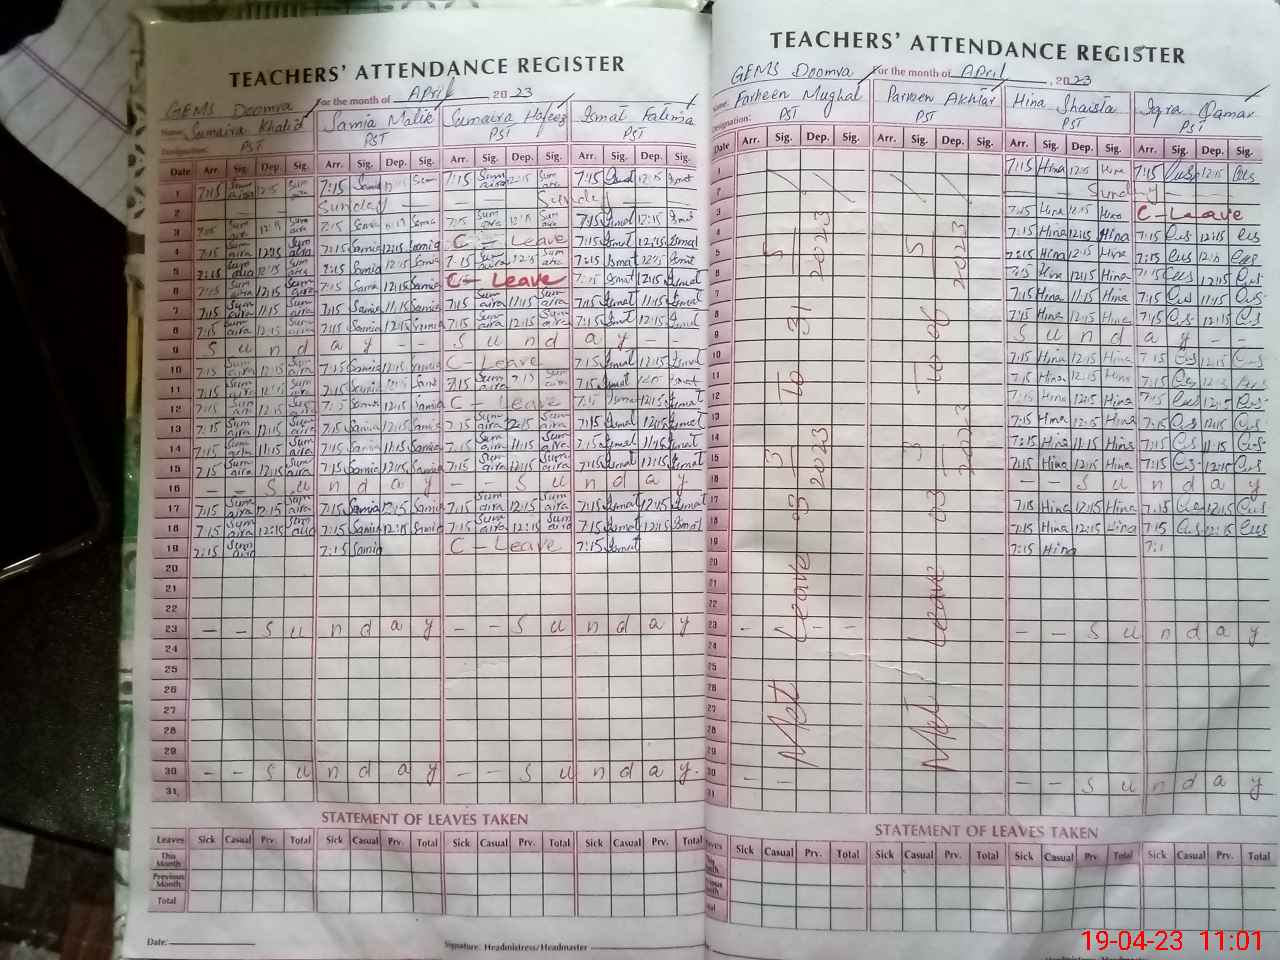 TEACHERS' ATTENDANCE REGISTER
GEMS Doomra For the month of April 2023
Name: Sumaira Khalid Samia Malik Sumaira Hafeez Ismat Fatima
Designation: PST PST PST PST
Date Arr. Sig. Dep. Sig. Arr. Sig. Dep. Sig. Arr. Sig. Dep. Sig. Arr. Sig. Dep. Sig.
1 7:15 Sumaira 12:15 Sumaira 7:15 Samia 7:15 Sumaira 12:15 Sumaira 7:15 Ismat 12:15 Ismat
2 - - Sunday - - Sunday - -
3 7:15 Sumaira 12:15 Sumaira 7:15 Samia Samia 7:15 Sumaira 12:15 Sumaira 7:15 Ismat 12:15 Ismat
4 7:15 Sumaira 12:15 Sumaira 7:15 Samia 12:15 Samia C - Leave 7:15 Ismat 12:15 Ismat
5 7:15 Sumaira 12:15 Sumaira 7:15 Samia 12:15 Samia 7:15 Sumaira 12:15 Sumaira 7:15 Ismat 12:15 Ismat
6 7:15 Sumaira 12:15 Sumaira 7:15 Samia 12:15 Samia C - Leave 7:15 Ismat 12:15 Ismat
7 7:15 Sumaira 11:15 Sumaira 7:15 Samia 11:15 Samia 7:15 Sumaira 11:15 Sumaira 7:15 Ismat 11:15 Ismat
8 7:15 Sumaira 12:15 Sumaira 7:15 Samia 12:15 Samia 7:15 Sumaira 12:15 Sumaira 7:15 Ismat 12:15 Ismat
9 S u n d a y - - S u n d a y - -
10 7:15 Sumaira 12:15 Sumaira 7:15 Samia 12:15 Samia C - Leave 7:15 Ismat 12:15 Ismat
11 7:15 Sumaira 12:15 Sumaira 7:15 Samia Samia 7:15 Sumaira Sumaira 7:15 Ismat 12:15 Ismat
12 7:15 Sumaira 12:15 Sumaira 7:15 Samia 12:15 Samia C - Leave 7:15 Ismat 12:15 Ismat
13 7:15 Sumaira 12:15 Sumaira 7:15 Samia 12:15 Samia 7:15 Sumaira 12:15 Sumaira 7:15 Ismat 12:15 Ismat
14 7:15 Sumaira 11:15 Sumaira 7:15 Samia 11:15 Samia 7:15 Sumaira 11:15 Sumaira 7:15 Ismat 11:15 Ismat
15 7:15 Sumaira 12:15 Sumaira 7:15 Samia 12:15 Samia 7:15 Sumaira 12:15 Sumaira 7:15 Ismat 12:15 Ismat
16 - - S u n d a y - - S u n d a y
17 7:15 Sumaira 12:15 Sumaira 7:15 Samia 12:15 Samia 7:15 Sumaira 12:15 Sumaira 7:15 Ismat 12:15 Ismat
18 7:15 Sumaira 12:15 Sumaira 7:15 Samia 12:15 Samia 7:15 Sumaira 12:15 Sumaira 7:15 Ismat 12:15 Ismat
19 7:15 Sumaira 7:15 Samia C - Leave 7:15 Ismat
20
21
22
23 - - S u n d a y - - S u n d a y
24
25
26
27
28
29
30 - - S u n d a y - - S u n d a y.
31
STATEMENT OF LEAVES TAKEN
Leaves Sick Casual Prv. Total Sick Casual Prv. Total Sick Casual Prv. Total Sick Casual Prv. Total
This Month
Previous Month
Total
Date: Signature: Headmistress/Headmaster
TEACHERS' ATTENDANCE REGISTER
GEMS Doomra For the month of April, 2023
Name: Farheen Mughal Parveen Akhtar Hina Shaista Iqra Qamar
Designation: PST PST PST PST
Date Arr. Sig. Dep. Sig. Arr. Sig. Dep. Sig. Arr. Sig. Dep. Sig. Arr. Sig. Dep. Sig.
Mat Leave 03/3/2023 To 31/5/2023
Mat Leave 03/3/2023 To 06/5/2023
1 7:15 Hina 12:15 Hina 7:15 12:15
2 Sunday
3 7:15 Hina 12:15 Hina C - Leave
4 7:15 Hina 12:15 Hina 7:15 12:15
5 7:15 Hina 12:15 Hina 7:15 12:15
6 7:15 Hina 12:15 Hina 7:15 12:15
7 7:15 Hina 11:15 Hina 7:15 11:15
8 7:15 Hina 12:15 Hina 7:15 12:15
9 S u n d a y - -
10 7:15 Hina 12:15 Hina 7:15 12:15
11 7:15 Hina 12:15 Hina 7:15 12:15
12 7:15 Hina 12:15 Hina 7:15 12:15
13 7:15 Hina 12:15 Hina 7:15 12:15
14 7:15 Hina 11:15 Hina 7:15 11:15
15 7:15 Hina 12:15 Hina 7:15 12:15
16 - - S u n d a y
17 7:15 Hina 12:15 Hina 7:15 12:15
18 7:15 Hina 12:15 Hina 7:15 12:15
19 7:15 Hina 7:1
20
21
22
23 - - - - - S u n d a y
24
25
26
27
28
29
30 - - - - S u n d a y
31
STATEMENT OF LEAVES TAKEN
Sick Casual Prv. Total Sick Casual Prv. Total Sick Casual Prv. Total Sick Casual Prv. Total
19-04-23 11:01